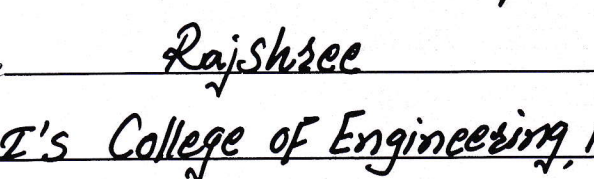 Rajshree
I's College of Engineering,